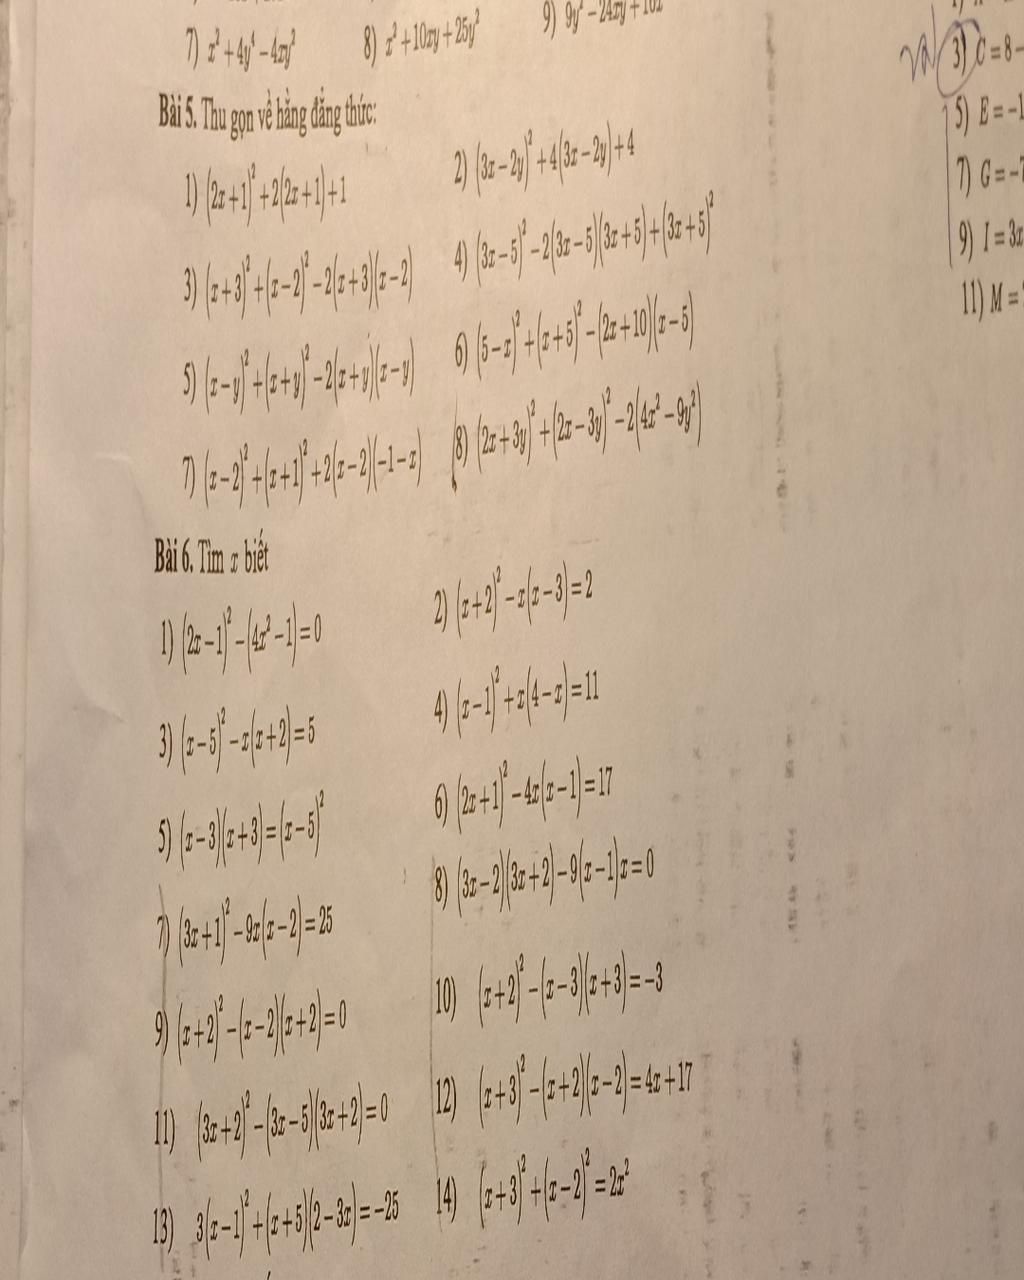 7) x² + 4y⁴ − 4xy²
8) x² + 10xy + 25y²
9) 9y² − 24xy +
Bài 5. Thu gọn về hằng đẳng thức:
1) (2x+1)² + 2(2x+1) + 1
2) (3x−2y)² + 4(3x−2y) + 4
3) (x+3)² + (x−2)² − 2(x+3)(x−2)
4) (3x−5)² − 2(3x−5)(3x+5) + (3x+5)²
5) (x−y)² + (x+y)² − 2(x+y)(x−y)
6) (5−x)² + (x+5)² − (2x+10)(x−5)
7) (x−2)² + (x+1)² + 2(x−2)(−1−x)
8) (2x+3y)² + (2x−3y)² − 2(4x² − 9y²)
Bài 6. Tìm x biết
1) (2x−1)² − (4x² − 1) = 0
2) (x+2)² − x(x−3) = 2
3) (x−5)² − x(x+2) = 5
4) (x−1)² + x(4−x) = 11
5) (x−3)(x+3) = (x−5)²
6) (2x+1)² − 4x(x−1) = 17
7) (3x+1)² − 9x(x−2) = 25
8) (3x−2)(3x+2) − 9(x−1)x = 0
9) (x+2)² − (x−2)(x+2) = 0
10) (x+2)² − (x−3)(x+3) = −3
11) (3x+2)² − (3x−5)(3x+2) = 0
12) (x+3)² − (x+2)(x−2) = 4x+17
13) 3(x−1)² + (x+5)(2−3x) = −25
14) (x+3)² + (x−2)² = 2x²
3) C = 8 −
5) E = −1
7) G = −7
9) I = 3x
11) M =